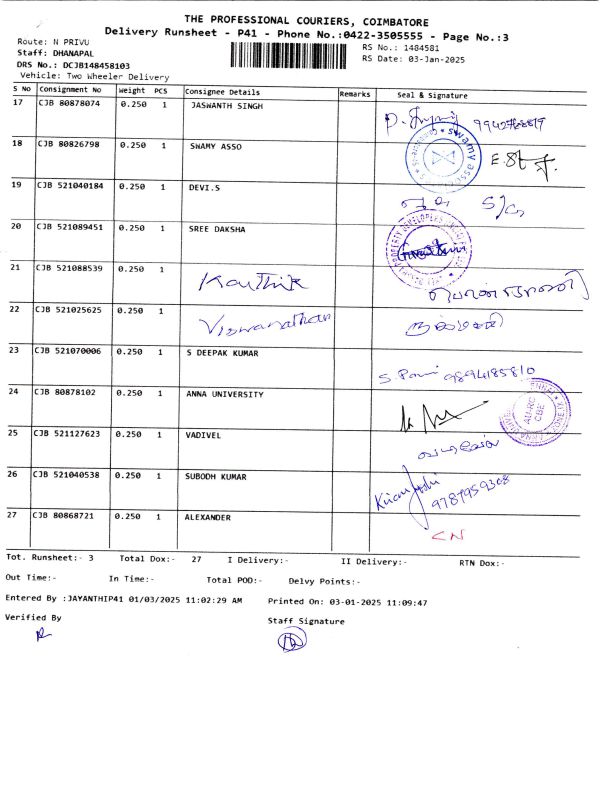 THE PROFESSIONAL COURIERS, COIMBATORE
Delivery Runsheet - P41 - Phone No.:0422-3505555 - Page No.:3
Route: N PRIVU
RS No.: 1484581
Staff: DHANAPAL
RS Date: 03-Jan-2025
DRS No.: DCJB148458103
Vehicle: Two Wheeler Delivery
S No Consignment No Weight PCS Consignee Details Remarks Seal & Signature
17 CJB 80878074 0.250 1 JASWANTH SINGH
18 CJB 80826798 0.250 1 SWAMY ASSO
19 CJB 521040184 0.250 1 DEVI.S
20 CJB 521089451 0.250 1 SREE DAKSHA
21 CJB 521088539 0.250 1 Kauthik
22 CJB 521025625 0.250 1 Viswanathan
23 CJB 521070006 0.250 1 S DEEPAK KUMAR
S 9894185810
24 CJB 80878102 0.250 1 ANNA UNIVERSITY
AU-RC
CBE
25 CJB 521127623 0.250 1 VADIVEL
26 CJB 521040538 0.250 1 SUBODH KUMAR
9787959308
27 CJB 80868721 0.250 1 ALEXANDER
CN
Tot. Runsheet:- 3 Total Dox:- 27 I Delivery:- II Delivery:- RTN Dox:-
Out Time:- In Time:- Total POD:- Delvy Points:-
Entered By :JAYANTHIP41 01/03/2025 11:02:29 AM Printed On: 03-01-2025 11:09:47
Verified By
Staff Signature